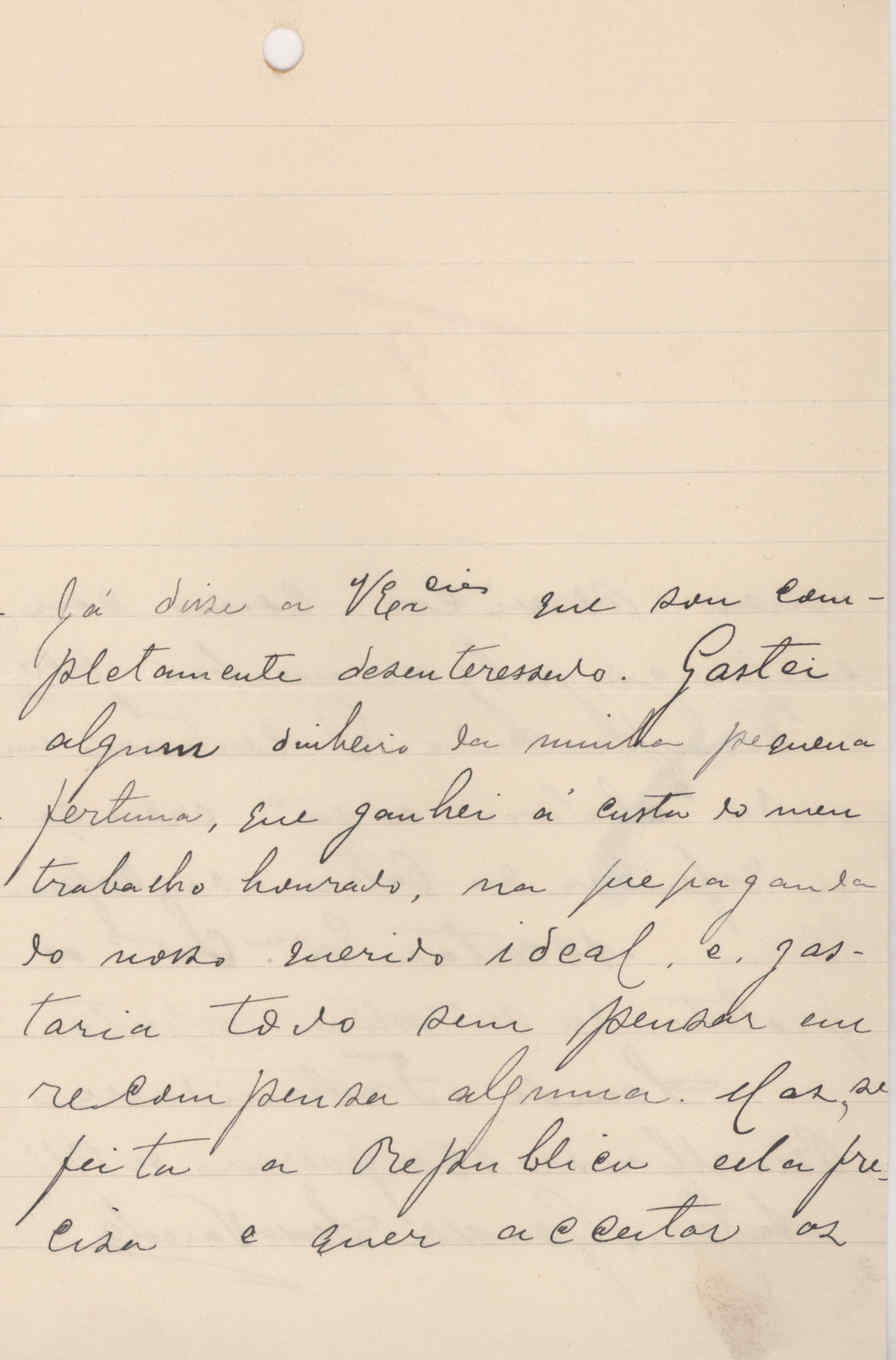 Já disse a VExcias que sou com-
pletamente desenteressado. Gastei
algum dinheiro da minha pequena
fortuna, que ganhei á custa do meu
trabalho honrado, na propaganda
do nosso querido ideal, e, gas-
taria todo sem pensar em
recompensa alguma. Mas, se
feita a Republica ela pre-
cisa e quer acceitar os